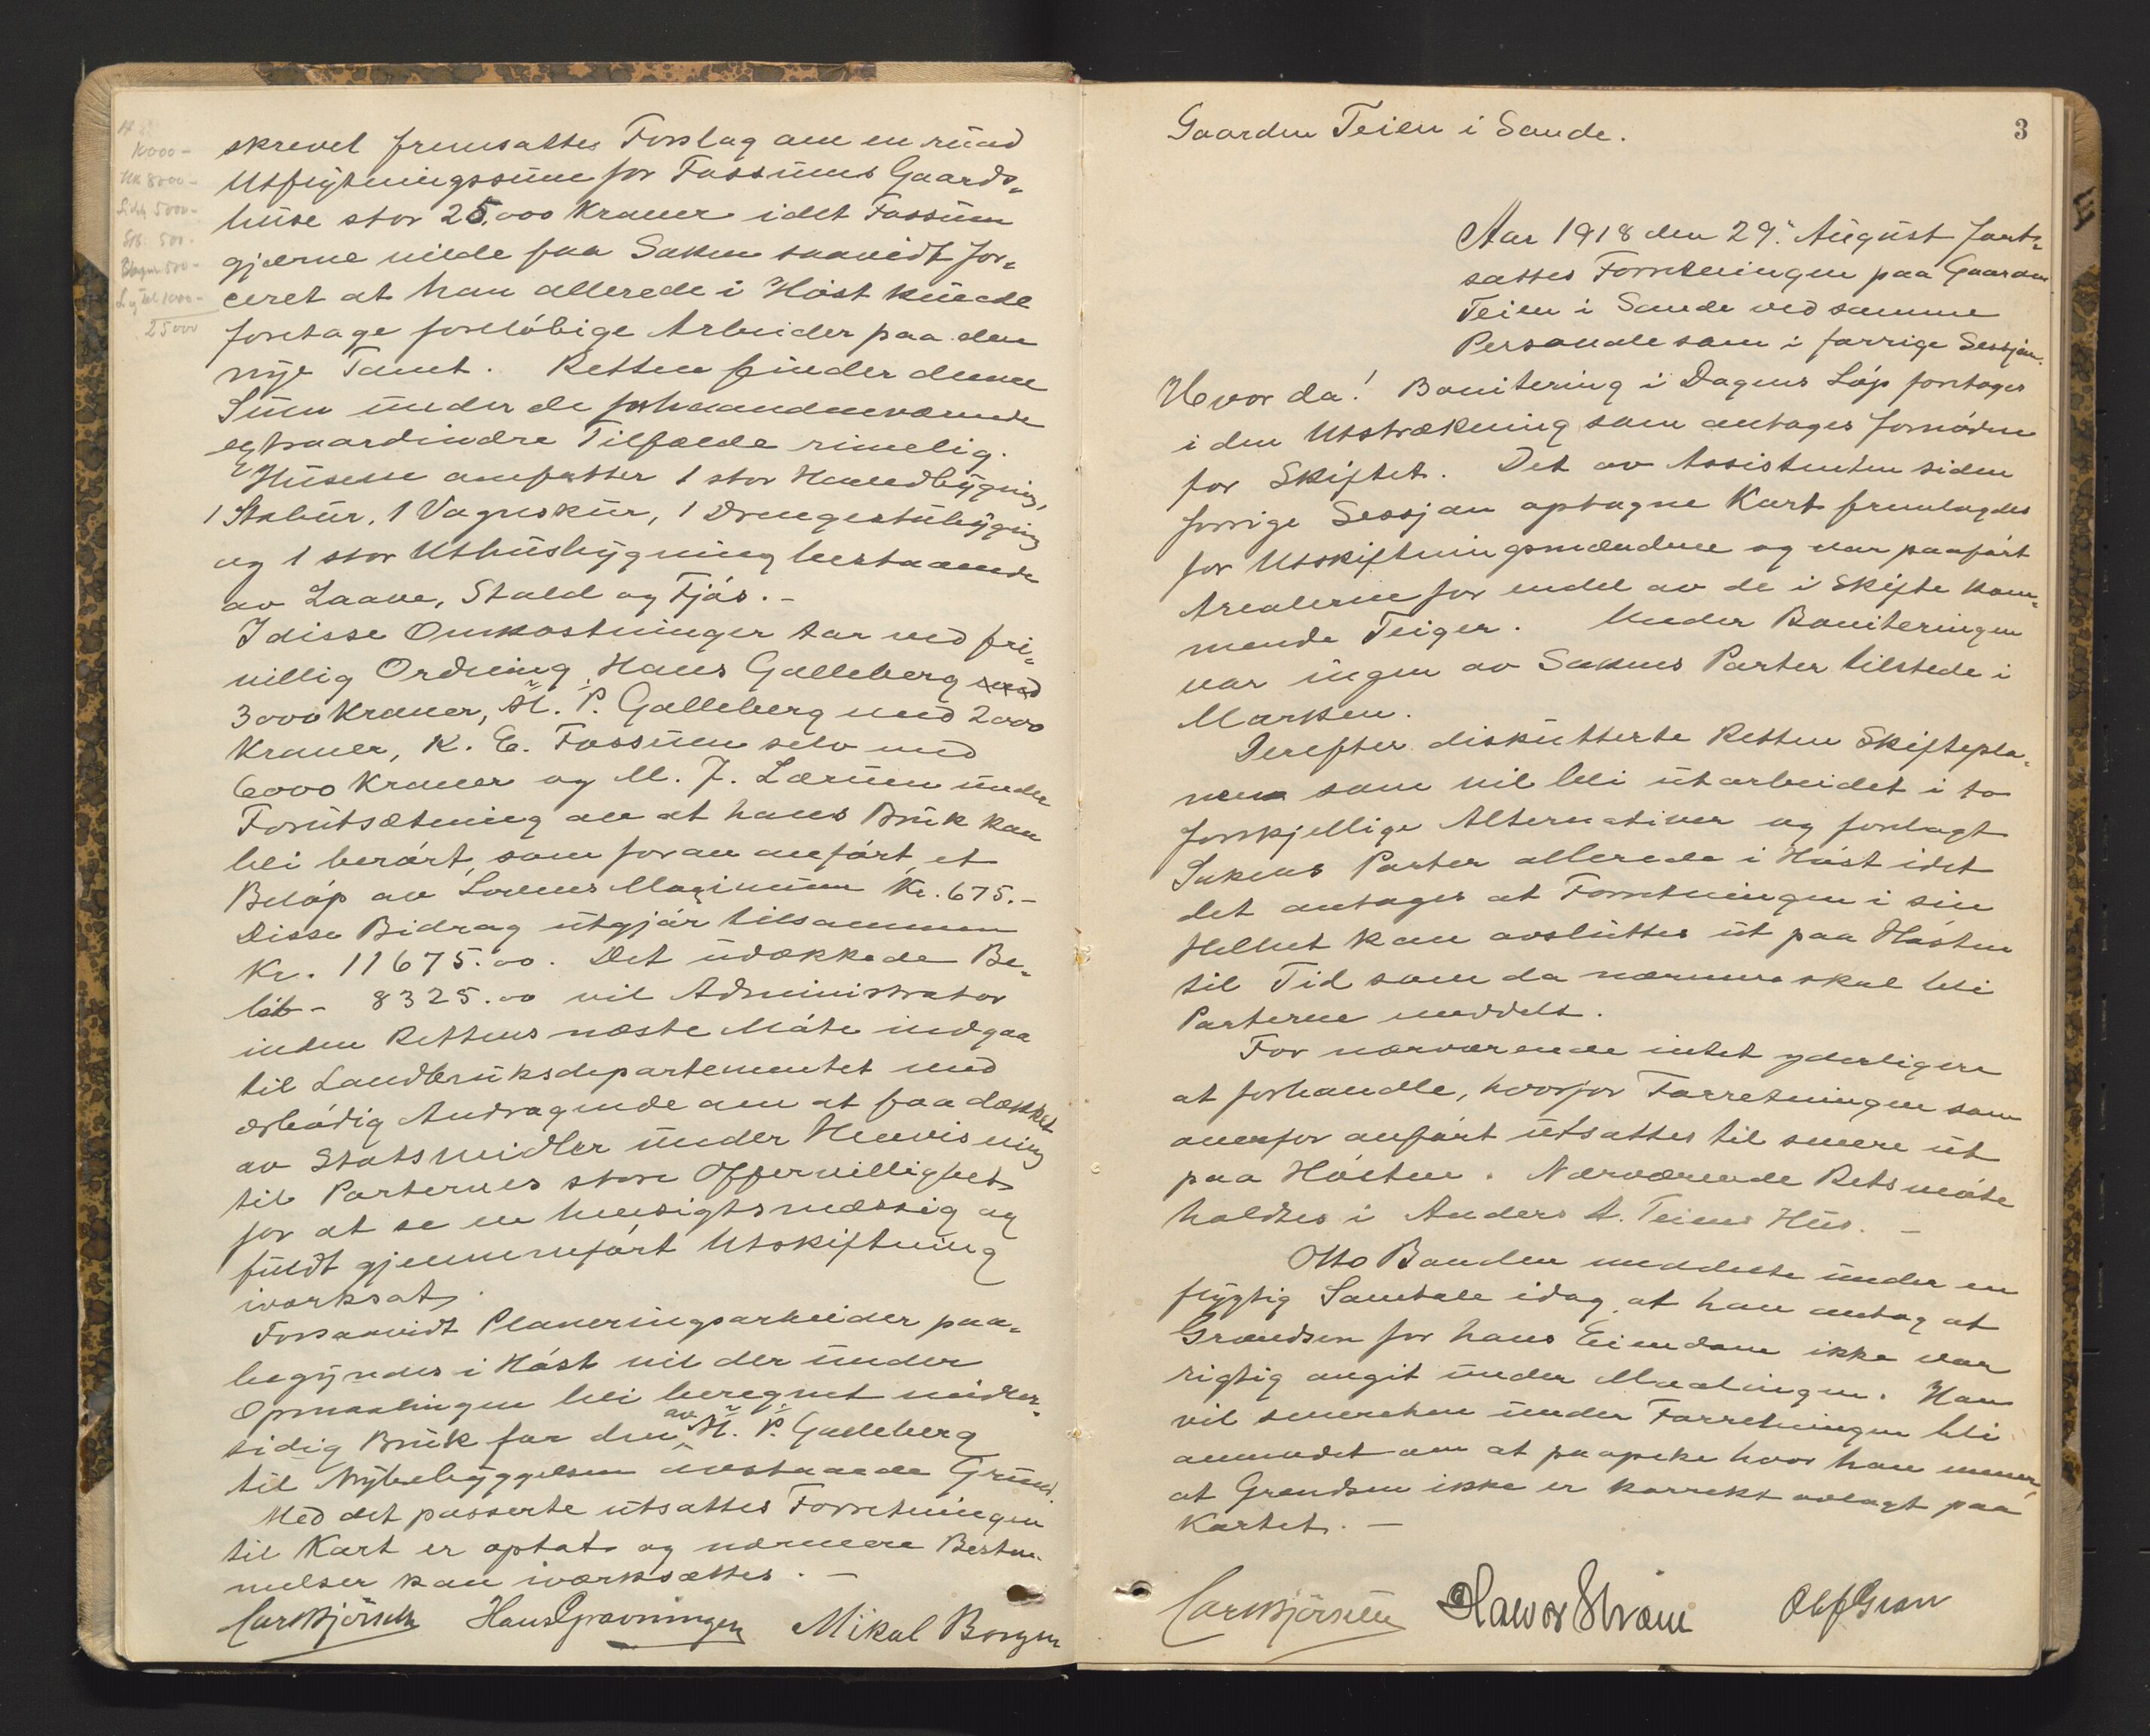 H
10000 -
UH 8000 -
Sideb 5000 -
Stb. 500 -
Vognsk 500 -
25000
skrevet fremsattes Forslag om en rund
Utflytningssum for Fossums Gaards-
huse stor 25.000 Kroner idet Fossum
gjærne vilde faa Saken saavidt for-
ceret at han allerede i Høst kunde
foretage foreløbige Arbeider paa den
nye Tomt. Retten finder denne
Sum under de forhaandenværende
extraordinære Tilfælde rimelig.
Husene omfatter 1 stor Hovedbygning,
1 Stabur, 1 Vognskur, 1 Drengestubygning
og 1 stor Uthusbygning bestaaende
av Laave, Stald og Fjøs. -
I disse Omkostninger tar ved fri-
villig Ordning Hans Galleberg med
3000 Kroner, M. P. Galleberg med 2000
Kroner, K. E. Fossum selv med
6000 Kroner og M. J. Lærum under
Forutsætning av at hans Bruk kan
bli berørt, som foran anført, et
Beløp av Lovens Maximum Kr. 675.-
Disse Bidrag utgjør tilsammen
Kr. 11675.00. Det udækkede Be-
løb - 8325.00 vil Administrator
inden Rettens næste Møte indgaa
til Landbruksdepartementet med
ærbødig Andragende om at faa dækket
av Statsmidler under Henvisning
til Parternes store Offervillighet
for at se en hensigtsmæssig og
fuldt gjennemført Utskiftning
iverksat.
Forsaavidt Planeringsarbeider paa-
begyndes i Høst vil der under
Opmaalingen bli beregnet midler-
tidig Bruk for den av M. P. Galleberg
til Nybebyggelsen avstaaede Grund.
Med det passerte utsattes Forretningen
til Kart er optat og nærmere Bestem-
melser kan iværksættes. -
Carl Bjørseth Hans Gravningen Mikal Borgen
3
Gaarden Teien i Sande.
Aar 1918 den 29. August fort-
sattes Forretningen paa Gaarden
Teien i Sande ved samme
Personale som i forrige Sessjon.
Hvor da! Bonitering i Dagens Løp foretages
i den Utstrækning som antages fornøden
for Skiftet. Det av Assistenten siden
forrige Sessjon optagne Kart fremlagdes
for Utskiftningsmændene og var paaført
Arealerne for endel av de i Skifte kom-
mende Teiger. Under Boniteringen
var ingen av Sakens Parter tilstede i
Marken.
Derefter diskutterte Retten Skiftepla-
nen som vil bli utarbeidet i to
forskjellige Alternativer og forelagt
Sakens Parter allerede i Høst idet
det antages at Forretningen i sin
Helhet kan avsluttes ut paa Høsten
til Tid som da nærmere skal bli
Parterne meddelt.
For nærværende intet yderligere
at forhandle, hvorfor Forretningen som
ovenfor anført utsattes til senere ut
paa Høsten. Nærværende Retsmøte
holdtes i Anders A. Teiens Hus. -
Otto Banden meddelte under en
flygtig Samtale idag, at han antog at
Grændsen for hans Eiendom ikke var
rigtig angit under Maalingen. Han
vil senerehen under Forretningen bli
anmodet om at paapeke hvor han mener,
at Grændsen ikke er korrekt avlagt paa
Kartet. -
Carl Bjørseth Halvor Strøm Olaf Gran